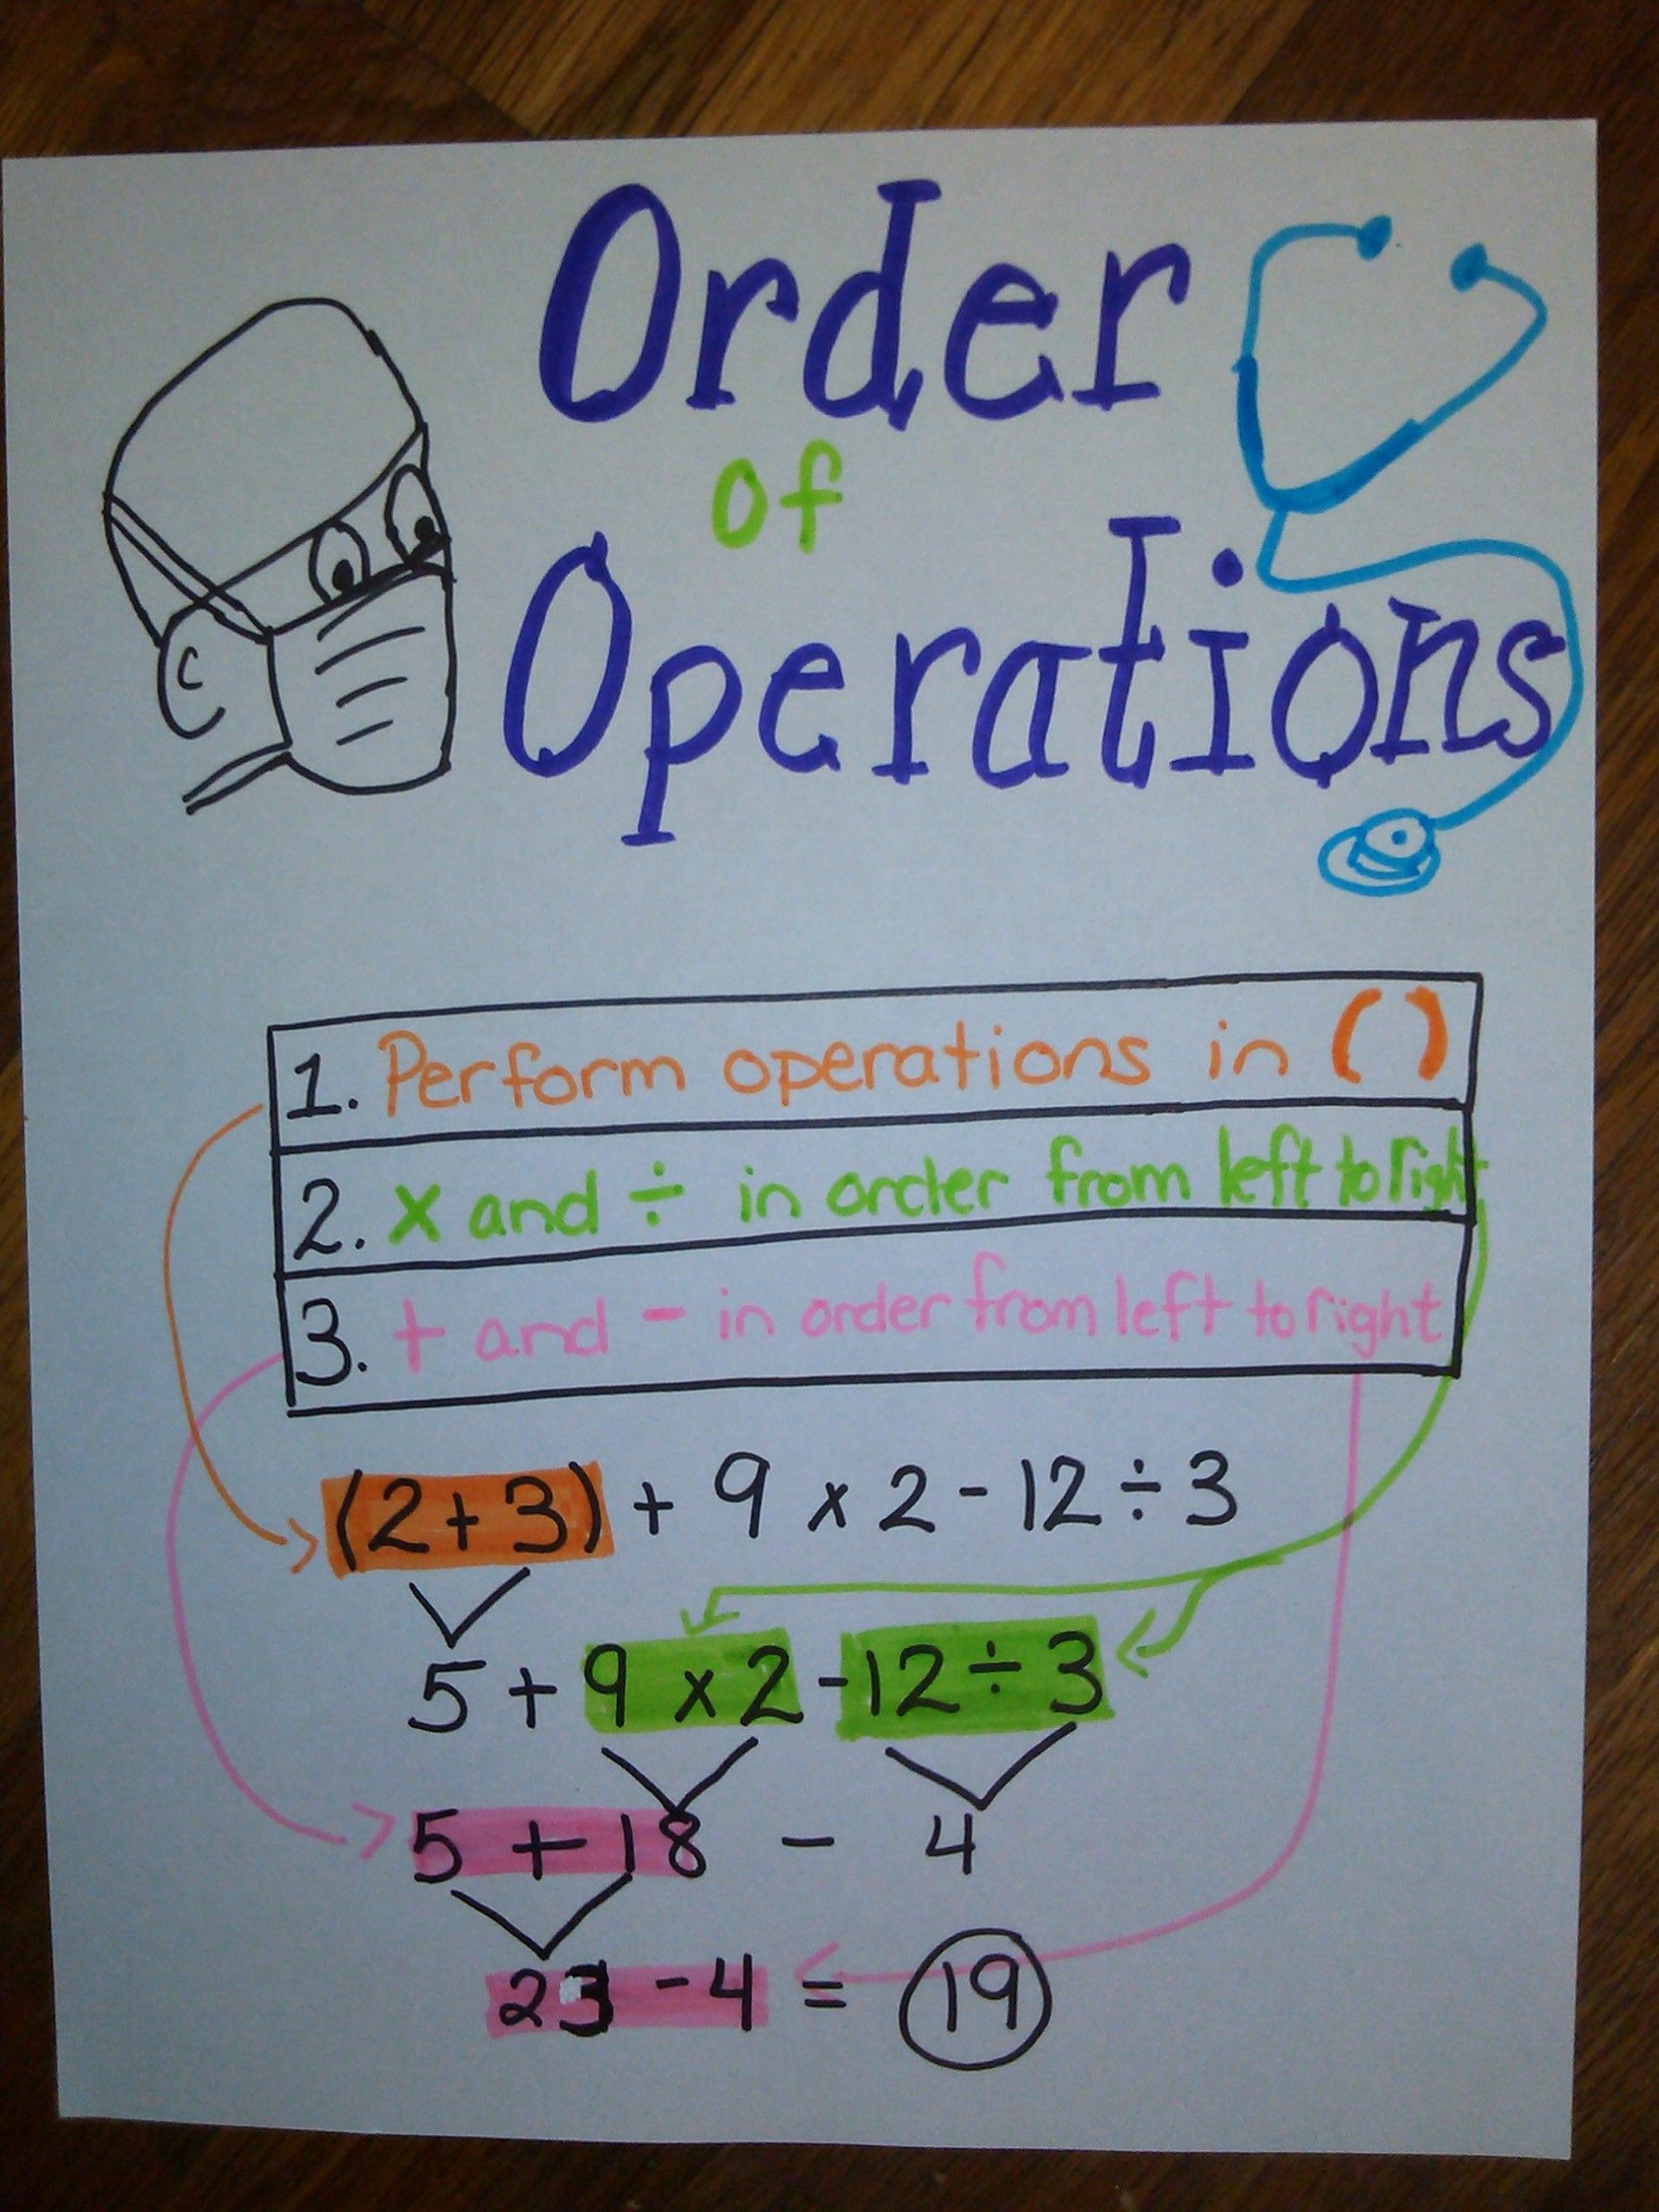 Order
of
Operations
1. Perform operations in ( )
2. x and ÷ in order from left to right
3. + and - in order from left to right
(2+3) + 9 x 2 - 12 ÷ 3
5 + 9 x 2 - 12 ÷ 3
5 + 18 - 4
23 - 4 = 19